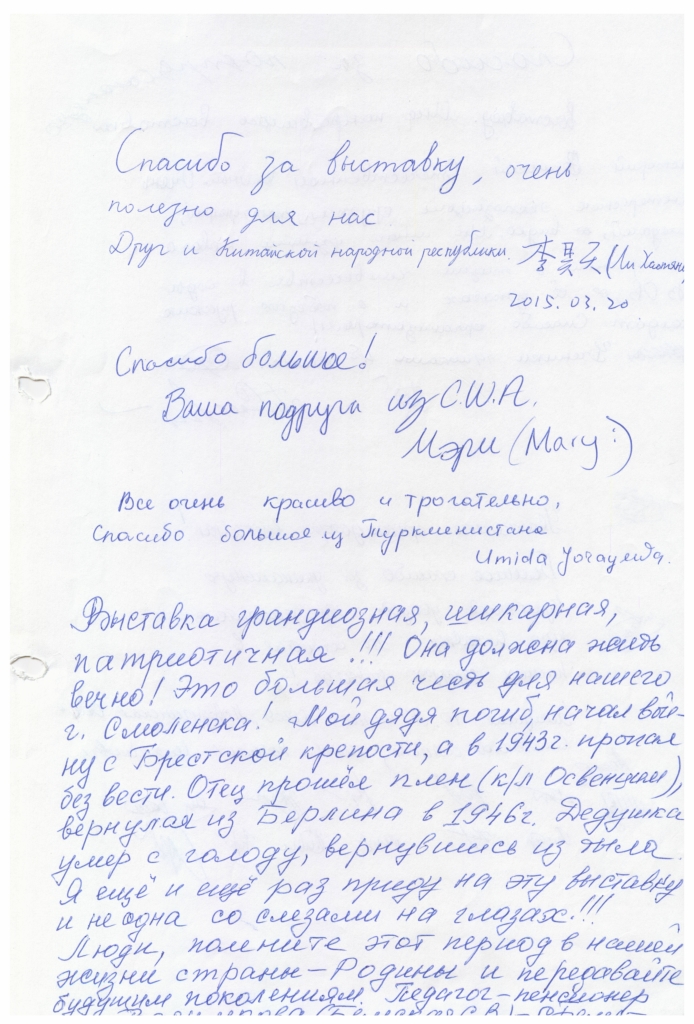 Спасибо за выставку, очень
полезно для нас
Друг и Китайской народной республики. 李昊天 (Ли Хаотянь
2015.03.20
Спасибо большое!
Ваша подруга из С.Ш.А.
Мэри (Mary :)
Все очень красиво и трогательно,
Спасибо большое из Туркменистана
Umida
Выставка грандиозная, шикарная,
патриотичная!!! Она должна жить
вечно! Это большая честь для нашего
г. Смоленска! Мой дядя погиб, начал вой-
ну с Брестской крепости, а в 1943г. пропал
без вести. Отец прошёл плен (к/л Освенцим),
вернулся из Берлина в 1946г. Дедушка
умер с голоду, вернувшись из тыла.
Я ещё и ещё раз приду на эту выставку
и не одна со слезами на глазах!!!
Люди, помните этот период в нашей
жизни страны-Родины и передавайте
будущим поколениям. Педагог-пенсионер